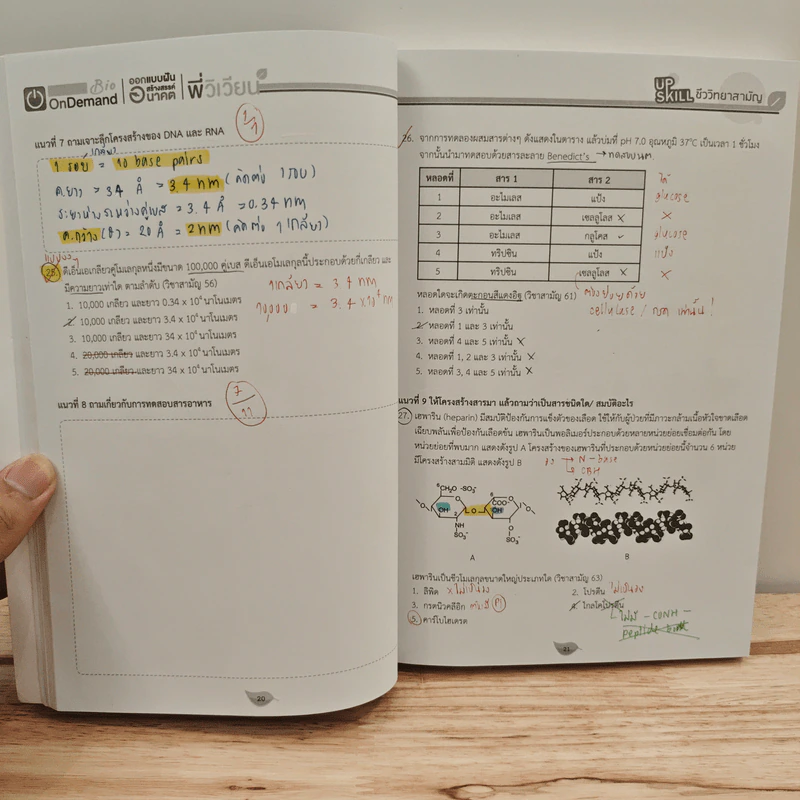 Bio
OnDemand
ออกแบบฝัน
สร้างสรรค์
อนาคต
พี่วิเวียน
แนวที่ 7 ถามเจาะลึกโครงสร้างของ DNA และ RNA
1/1
(เกลียว)
1 รอบ = 10 base pairs
ค.ยาว = 34 Å = 3.4 nm (คิดต่อ 1 รอบ)
ระยะห่างระหว่างคู่เบส = 3.4 Å = 0.34 nm
ค.กว้าง (θ) = 20 Å = 2 nm (คิดต่อ 1 เกลียว)
25. ดีเอ็นเอเกลียวคู่โมเลกุลหนึ่งมีขนาด 100,000 คู่เบส ดีเอ็นเอโมเลกุลนี้ประกอบด้วยกี่เกลียว และ
มีความยาวเท่าใด ตามลำดับ (วิชาสามัญ 56)
1เกลียว = 3.4 nm
1. 10,000 เกลียว และยาว 0.34 x 10⁴ นาโนเมตร
10,000 = 3.4 x 10⁴ nm
2. 10,000 เกลียว และยาว 3.4 x 10⁴ นาโนเมตร
3. 10,000 เกลียว และยาว 34 x 10⁴ นาโนเมตร
4. 20,000 เกลียว และยาว 3.4 x 10⁴ นาโนเมตร
5. 20,000 เกลียว และยาว 34 x 10⁴ นาโนเมตร
7/11
แนวที่ 8 ถามเกี่ยวกับการทดสอบสารอาหาร
20
UP
SKILL ชีววิทยาสามัญ
26. จากการทดลองผสมสารต่างๆ ดังแสดงในตาราง แล้วบ่มที่ pH 7.0 อุณหภูมิ 37°C เป็นเวลา 1 ชั่วโมง
จากนั้นนำมาทดสอบด้วยสารละลาย Benedict's → ทดสอบนต.
หลอดที่ สาร 1 สาร 2 ได้
1 อะไมเลส แป้ง glucose
2 อะไมเลส เซลลูโลส X X
3 อะไมเลส กลูโคส ✓ glucose
4 ทริปซิน แป้ง แป้ง
5 ทริปซิน เซลลูโลส X X
หลอดใดจะเกิดตะกอนสีแดงอิฐ (วิชาสามัญ 61) ต้องย่อยด้วย
1. หลอดที่ 3 เท่านั้น cellulase / กรด เท่านั้น!
2. หลอดที่ 1 และ 3 เท่านั้น
3. หลอดที่ 4 และ 5 เท่านั้น X
4. หลอดที่ 1, 2 และ 3 เท่านั้น X
5. หลอดที่ 3, 4 และ 5 เท่านั้น X
แนวที่ 9 ให้โครงสร้างสารมา แล้วถามว่าเป็นสารชนิดใด/ สมบัติอะไร
27. เฮพาริน (heparin) มีสมบัติป้องกันการแข็งตัวของเลือด ใช้ให้กับผู้ป่วยที่มีภาวะกล้ามเนื้อหัวใจขาดเลือด
เฉียบพลันเพื่อป้องกันเลือดข้น เฮพารินเป็นพอลิเมอร์ประกอบด้วยหลายหน่วยย่อยเชื่อมต่อกัน โดย
หน่วยย่อยที่พบมาก แสดงดังรูป A โครงสร้างของเฮพารินที่ประกอบด้วยหน่วยย่อยนี้จำนวน 6 หน่วย
มีโครงสร้างสามมิติ แสดงดังรูป B
→ N-base
CBH
⁶CH₂O -SO₃⁻
O
OH
2
NH
SO₃⁻
O
6
COO⁻
O
OH
2
O
SO₃⁻
O
A
B
เฮพารินเป็นชีวโมเลกุลขนาดใหญ่ประเภทใด (วิชาสามัญ 63)
1. ลิพิด X ไม่เป็นวง
2. โปรตีน ไม่เป็นวง
3. กรดนิวคลีอิก ต้องมี (P)
4. ไกลโคโปรตีน
5. คาร์โบไฮเดรต
ไม่มี - CONH -
peptide bond
21